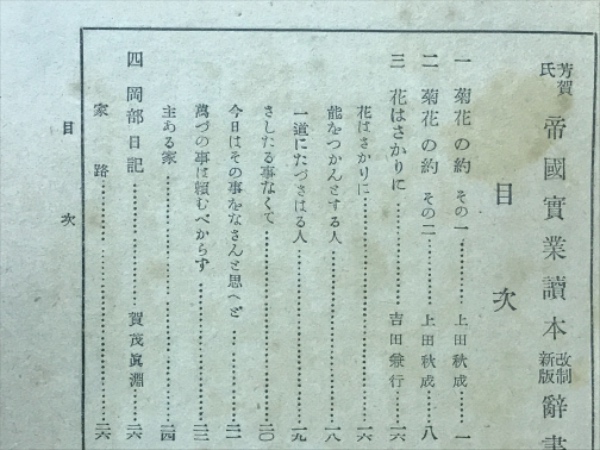 芳賀氏 帝國實業讀本 改制新版 辭書
目次
一 菊花の約 その一 上田秋成 一
二 菊花の約 その二 上田秋成 八
三 花はさかりに 吉田兼行 一六
花はさかりに 一六
能をつかんとする人 一八
一道にたづさはる人 一九
さしたる事なくて 二〇
今日はその事をなさんと思へど 二一
萬づの事は賴むべからず 二三
主ある家 二四
四 岡部日記 賀茂眞淵 二六
家路 二六
目次